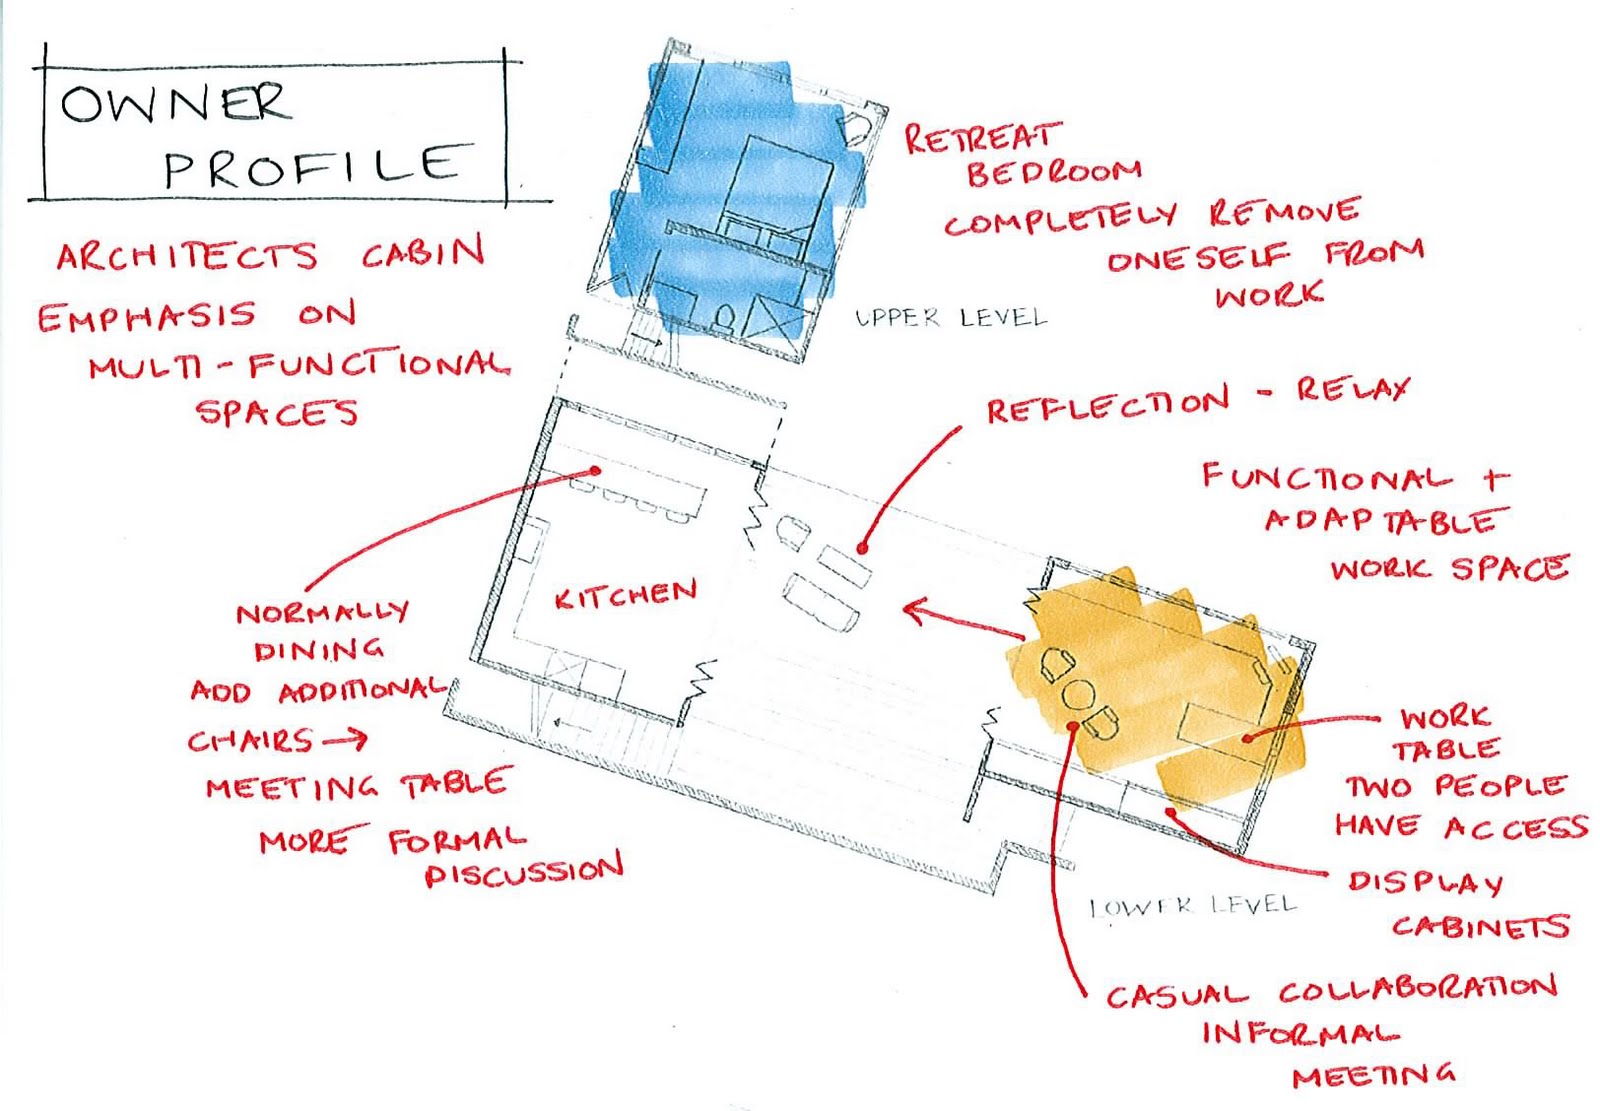 OWNER
PROFILE
ARCHITECTS CABIN
EMPHASIS ON
MULTI-FUNCTIONAL
SPACES
RETREAT
BEDROOM
COMPLETELY REMOVE
ONESELF FROM
WORK
UPPER LEVEL
REFLECTION - RELAX
FUNCTIONAL +
ADAPTABLE
WORK SPACE
KITCHEN
NORMALLY
DINING
ADD ADDITIONAL
CHAIRS →
MEETING TABLE
MORE FORMAL
DISCUSSION
WORK
TABLE
TWO PEOPLE
HAVE ACCESS
DISPLAY
CABINETS
LOWER LEVEL
CASUAL COLLABORATION
INFORMAL
MEETING